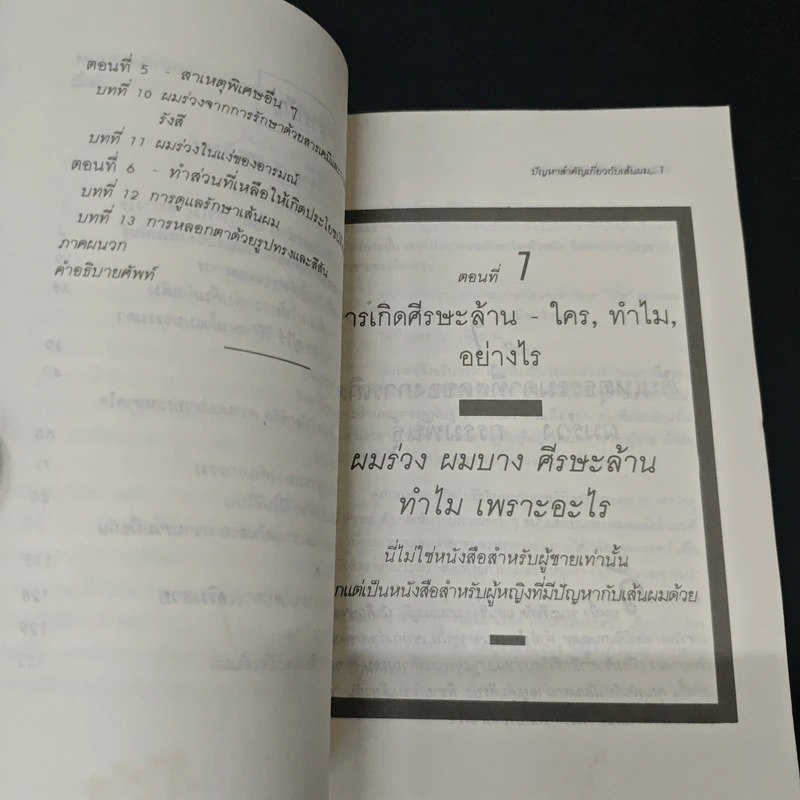 ตอนที่ 5 - สาเหตุพิเศษอื่น ๆ
บทที่ 10 ผมร่วงจากการรักษาด้วยสารเคมี
รังสี
บทที่ 11 ผมร่วงในแง่ของอารมณ์
ตอนที่ 6 - ทำส่วนที่เหลือให้เกิดประโยชน์
บทที่ 12 การดูแลรักษาเส้นผม
บทที่ 13 การหลอกตาด้วยรูปทรงและสีสัน
ภาคผนวก
คำอธิบายศัพท์
ปัญหาสำคัญเกี่ยวกับเส้นผม... 1
ตอนที่ 1
ารเกิดศีรษะล้าน - ใคร, ทำไม,
อย่างไร
ผมร่วง ผมบาง ศีรษะล้าน
ทำไม เพราะอะไร
นี่ไม่ใช่หนังสือสำหรับผู้ชายเท่านั้น
กแต่เป็นหนังสือสำหรับผู้หญิงที่มีปัญหากับเส้นผมด้วย